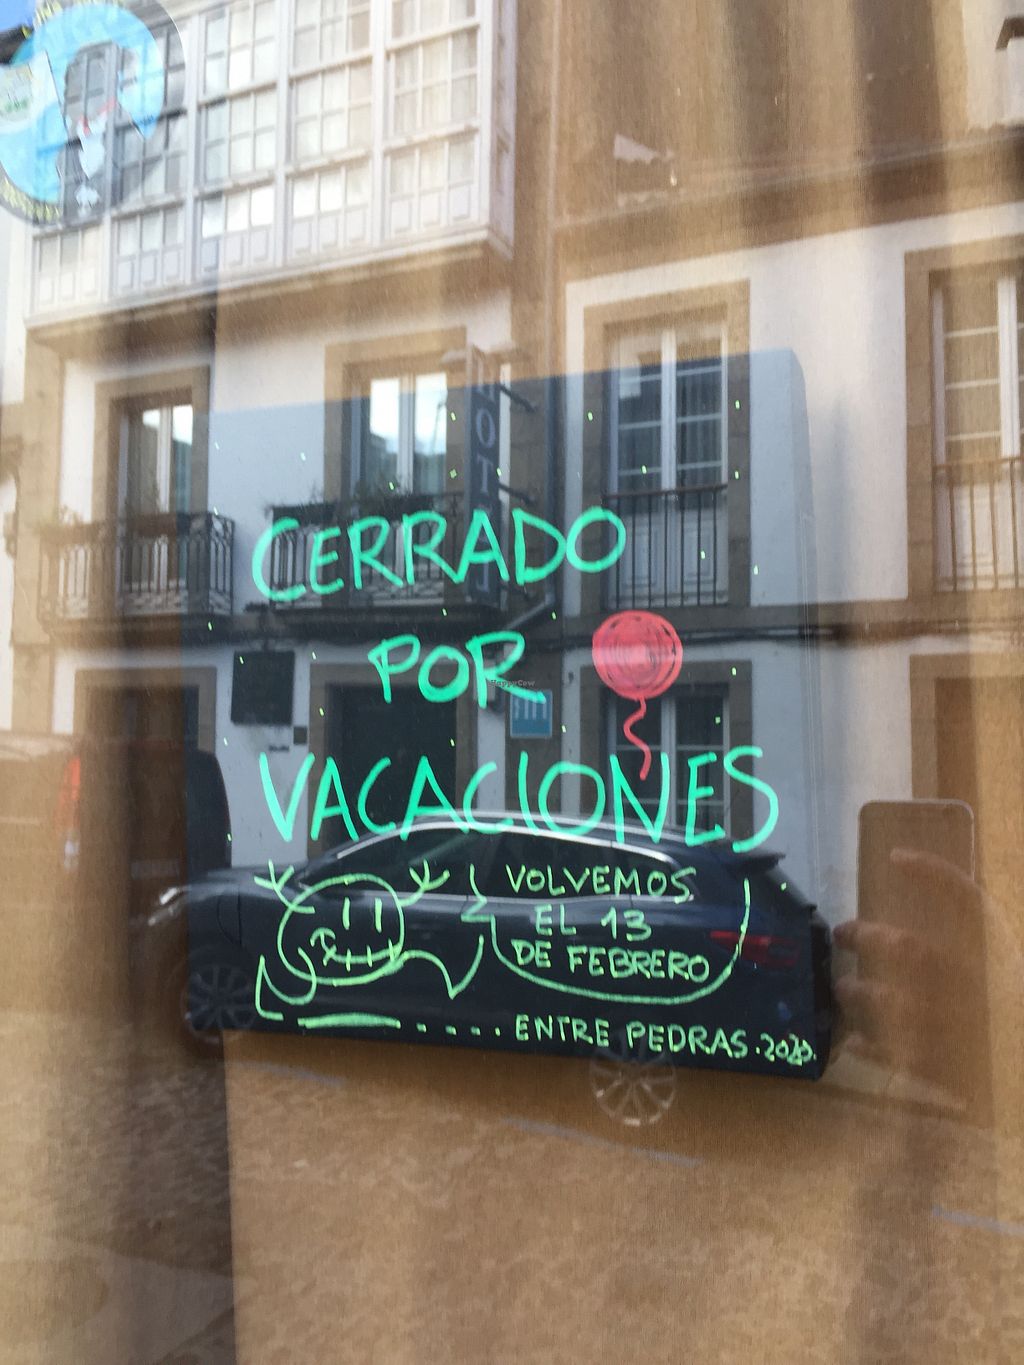 CERRADO
POR
VACACIONES
VOLVEMOS
EL 13
DE FEBRERO
ENTRE PEDRAS.2020.
HOTEL
HappyCow